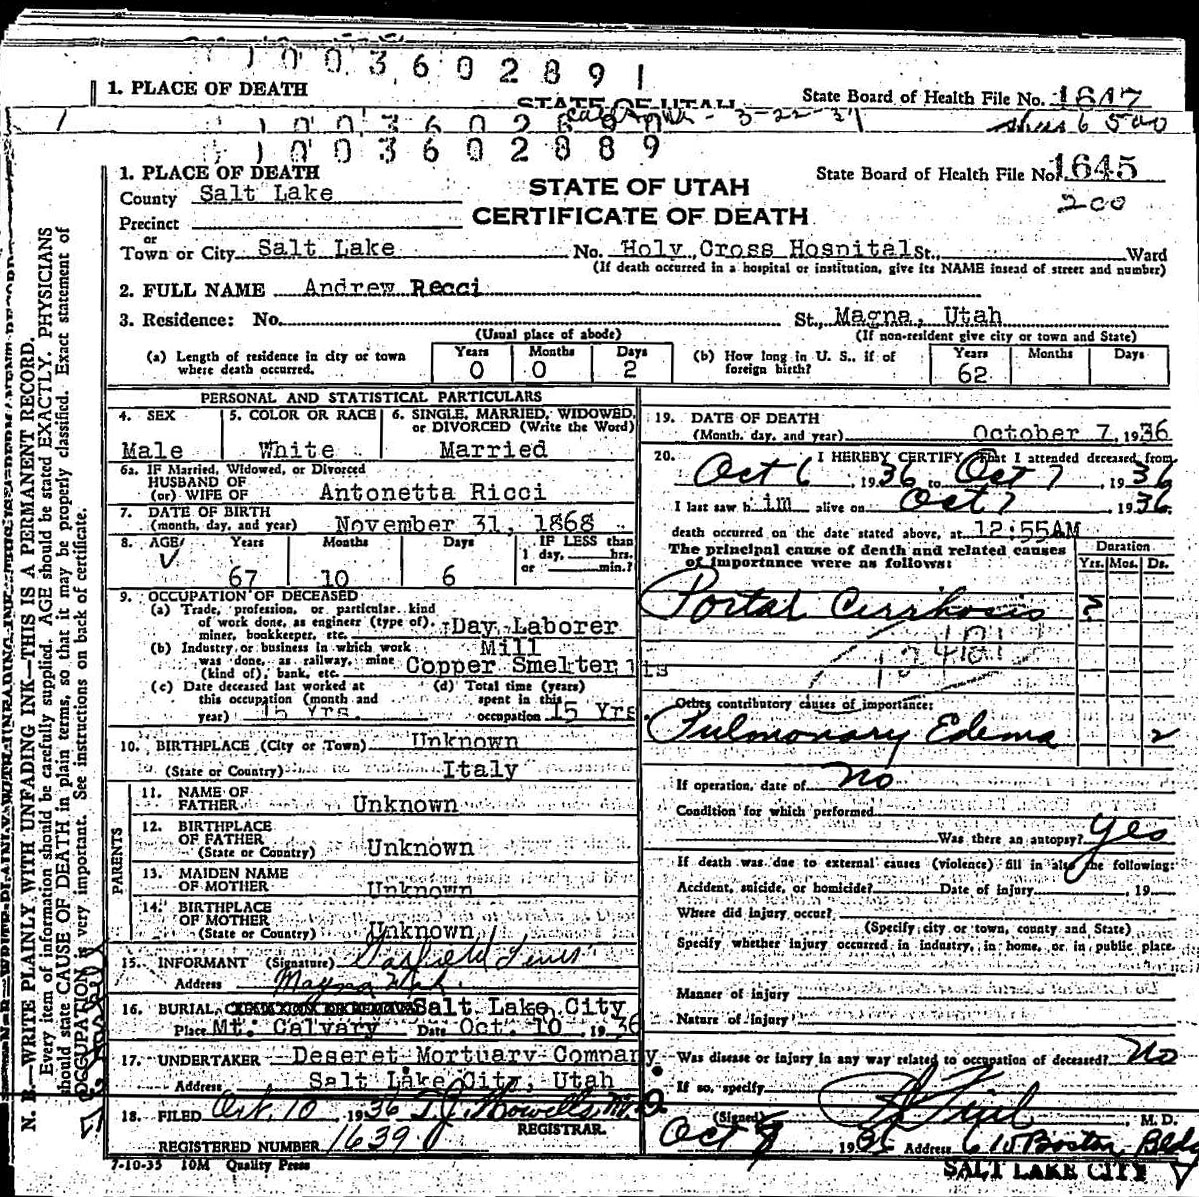 1003602891
1. PLACE OF DEATH
STATE OF UTAH
State Board of Health File No. 1647
3-22-3
1003602889
1. PLACE OF DEATH
County Salt Lake
STATE OF UTAH
CERTIFICATE OF DEATH
State Board of Health File No. 1645
200
Precinct
or
Town or City Salt Lake No. Holy Cross Hospital St., Ward
(If death occurred in a hospital or institution, give its NAME insead of street and number)
2. FULL NAME Andrew Recci
3. Residence: No. St., Magna, Utah
(Usual place of abode) (If non-resident give city or town and State)
(a) Length of residence in city or town where death occurred. Years 0 Months 0 Days 2
(b) How long in U. S., if of foreign birth? Years 62 Months Days
PERSONAL AND STATISTICAL PARTICULARS
4. SEX Male
5. COLOR OR RACE White
6. SINGLE, MARRIED, WIDOWED, or DIVORCED (Write the Word) Married
6a. IF Married, Widowed, or Divorced
HUSBAND OF
(or) WIFE OF Antonetta Ricci
7. DATE OF BIRTH
(month, day, and year) November 31, 1868
8. AGE Years 67 Months 10 Days 6 IF LESS than 1 day, hrs. or min.?
9. OCCUPATION OF DECEASED
(a) Trade, profession, or particular kind
of work done, as engineer (type of),
miner, bookkeeper, etc. Day Laborer
(b) Industry or business in which work Mill
was done, as railway, mine
(kind of), bank, etc. Copper Smelter
(c) Date deceased last worked at
this occupation (month and
year) 15 Yrs.
(d) Total time (years)
spent in this
occupation 15 Yrs.
10. BIRTHPLACE (City or Town) Unknown
(State or Country) Italy
PARENTS
11. NAME OF
FATHER Unknown
12. BIRTHPLACE
OF FATHER
(State or Country) Unknown
13. MAIDEN NAME
OF MOTHER Unknown
14. BIRTHPLACE
OF MOTHER
(State or Country) Unknown
15. INFORMANT (Signature)
Address Magna Utah
16. BURIAL, Salt Lake City
Place Mt. Calvary Date Oct. 10 1936
17. UNDERTAKER Deseret Mortuary Company
Address Salt Lake City, Utah
18. FILED Oct. 10 1936 M.D.
REGISTRAR.
REGISTERED NUMBER 1639
7-10-35 10M Quality Press
19. DATE OF DEATH
(Month, day, and year) October 7, 1936
20. I HEREBY CERTIFY That I attended deceased from
Oct 6, 1936 to Oct 7, 1936
I last saw him alive on Oct 7, 1936
death occurred on the date stated above, at 12:55AM
The principal cause of death and related causes
of importance were as follows:
Duration
Yrs. Mos. Ds.
Portal Cirrhosis ?
Other contributory causes of importance:
Pulmonary Edema 2
If operation, date of no
Condition for which performed
Was there an autopsy? yes
If death was due to external causes (violence) fill in also the following:
Accident, suicide, or homicide? Date of injury 19
Where did injury occur?
(Specify city or town, county and State)
Specify whether injury occurred in industry, in home, or in public place.
Manner of injury
Nature of injury
Was disease or injury in any way related to occupation of deceased? No
If so, specify
(Signed) M. D.
Oct 8 1936 Address 610 Boston Bldg
SALT LAKE CITY
N. B.—WRITE PLAINLY WITH UNFADING INK—THIS IS A PERMANENT RECORD.
Every item of information should be carefully supplied. AGE should be stated EXACTLY. PHYSICIANS
should state CAUSE OF DEATH in plain terms, so that it may be properly classified. Exact statement of
OCCUPATION is very important. See instructions on back of certificate.